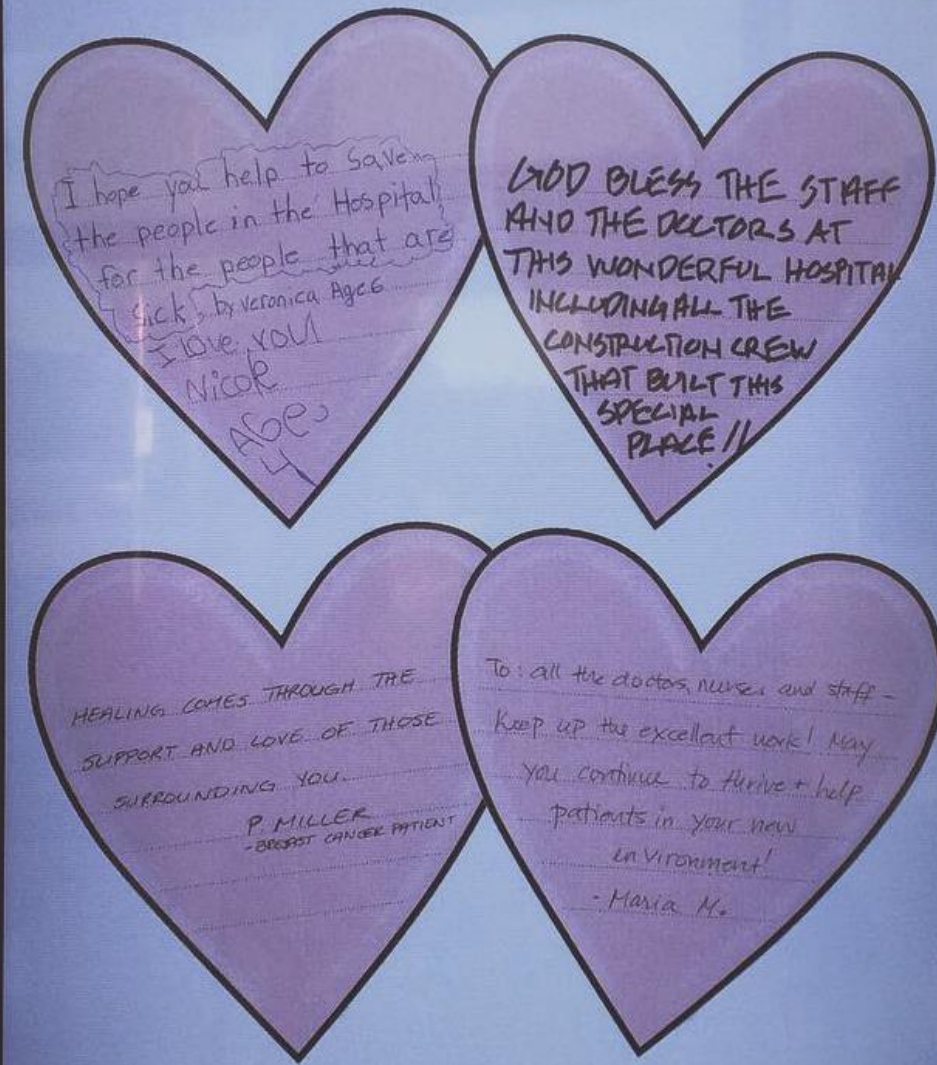 I hope you help to save
the people in the Hospital
for the people that are
sick, by veronica Age 6
I love you!
Nicole
AGe
4
GOD BLESS THE STAFF
AND THE DOCTORS AT
THIS WONDERFUL HOSPITAL
INCLUDING ALL THE
CONSTRUCTION CREW
THAT BUILT THIS
SPECIAL
PLACE!!
HEALING COMES THROUGH THE
SUPPORT AND LOVE OF THOSE
SURROUNDING YOU.
P. MILLER
-BREAST CANCER PATIENT
To: all the doctors, nurses and staff -
Keep up the excellent work! May
you continue to thrive + help
patients in your new
environment!
- Maria M.